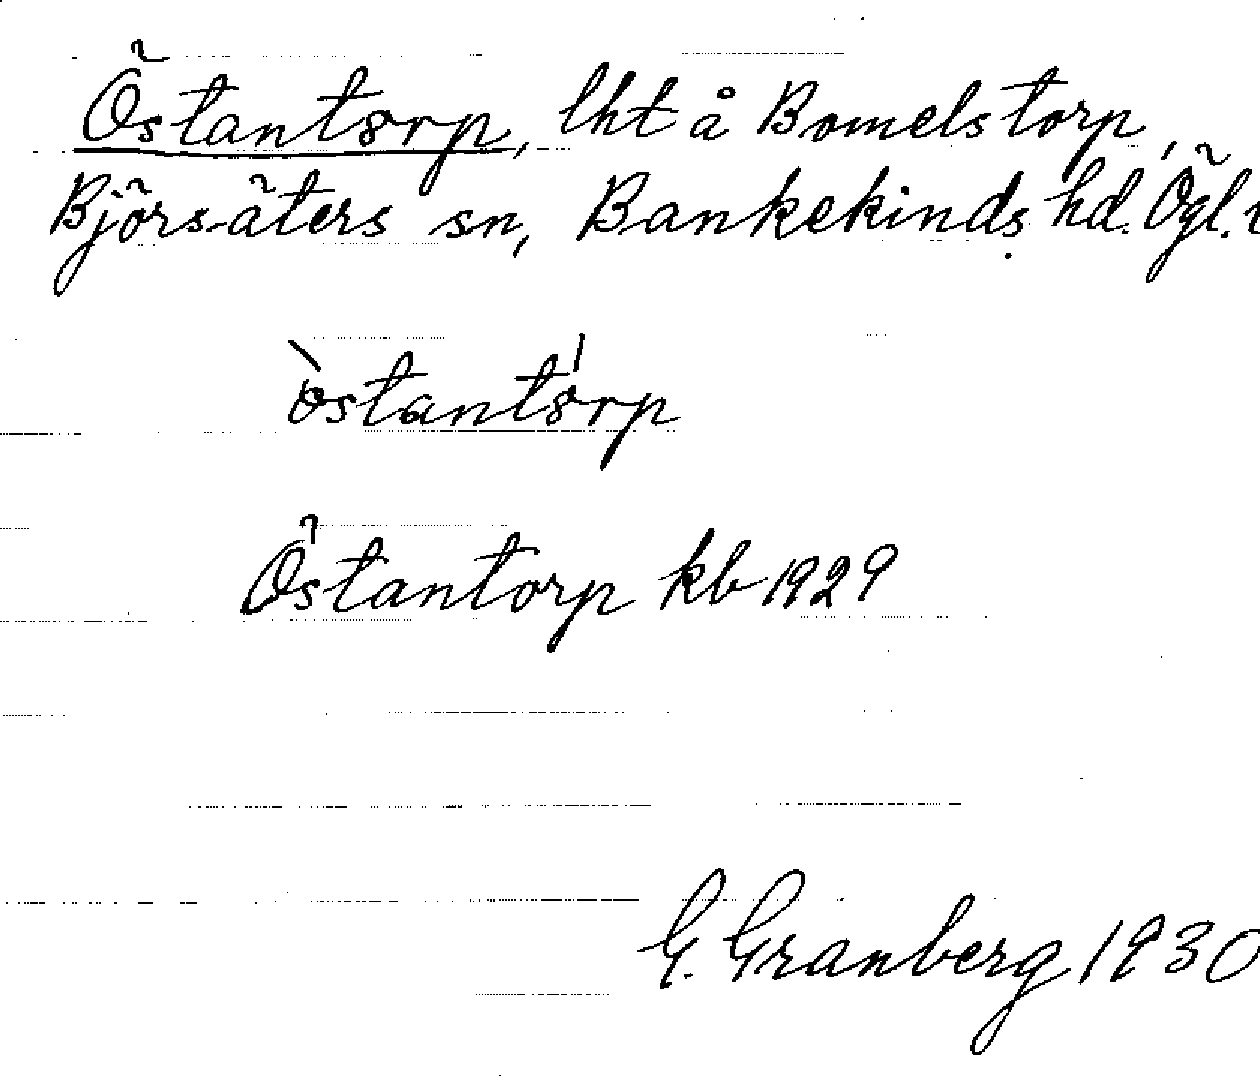 Östantorp, lht å Bomelstorp,
Björsäters sn, Bankekinds hd. Ögl.
òstantórp
Östantorp kb 1929
G. Granberg 1930